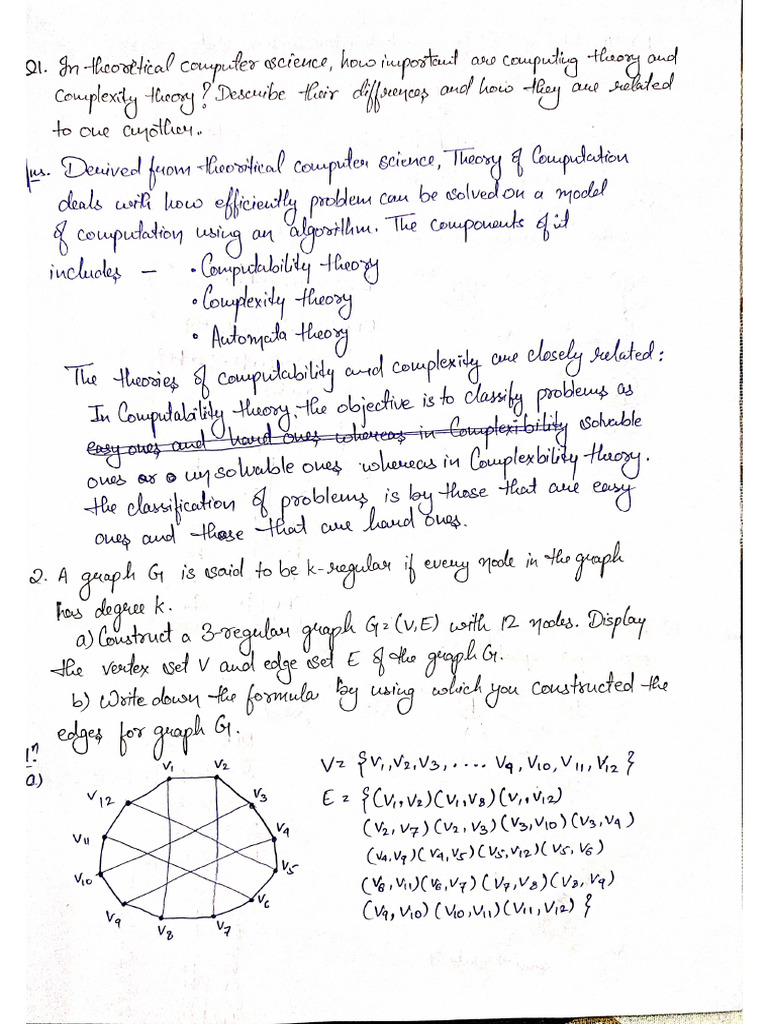 Q1. In theoritical computer science, how important are computing theory and
Complexity theory? Describe their differences and how they are related
to one another.
Ans. Derived from theoritical computer science, Theory of Computation
deals with how efficiently problem can be solved on a model
of computation using an algorithm. The components of it
includes –
• Computability theory
• Complexity theory
• Automata theory
The theories of computability and complexity are closely related:
In Computability theory, the objective is to classify problems as
easy ones and hard ones whereas in Complexibility solvable
ones or unsolvable ones whereas in Complexbility theory.
the classification of problems is by those that are easy
ones and those that are hard ones.
2. A graph G is said to be k-regular if every node in the graph
has degree k.
a) Construct a 3-regular graph G=(V,E) with 12 nodes. Display
the vertex set V and edge set E of the graph G.
b) Write down the formula by using which you constructed the
edges for graph G.
a)
V1 V2
V12 V3
V11 V4
V10 V5
V9 V6
V8 V7
V = {V1, V2, V3, .... V9, V10, V11, V12}
E = {(V1, V2) (V1, V8) (V1, V12)
(V2, V7) (V2, V3) (V3, V10) (V3, V4)
(V4, V9) (V4, V5) (V5, V12) (V5, V6)
(V6, V11) (V6, V7) (V7, V8) (V8, V9)
(V9, V10) (V10, V11) (V11, V12) }